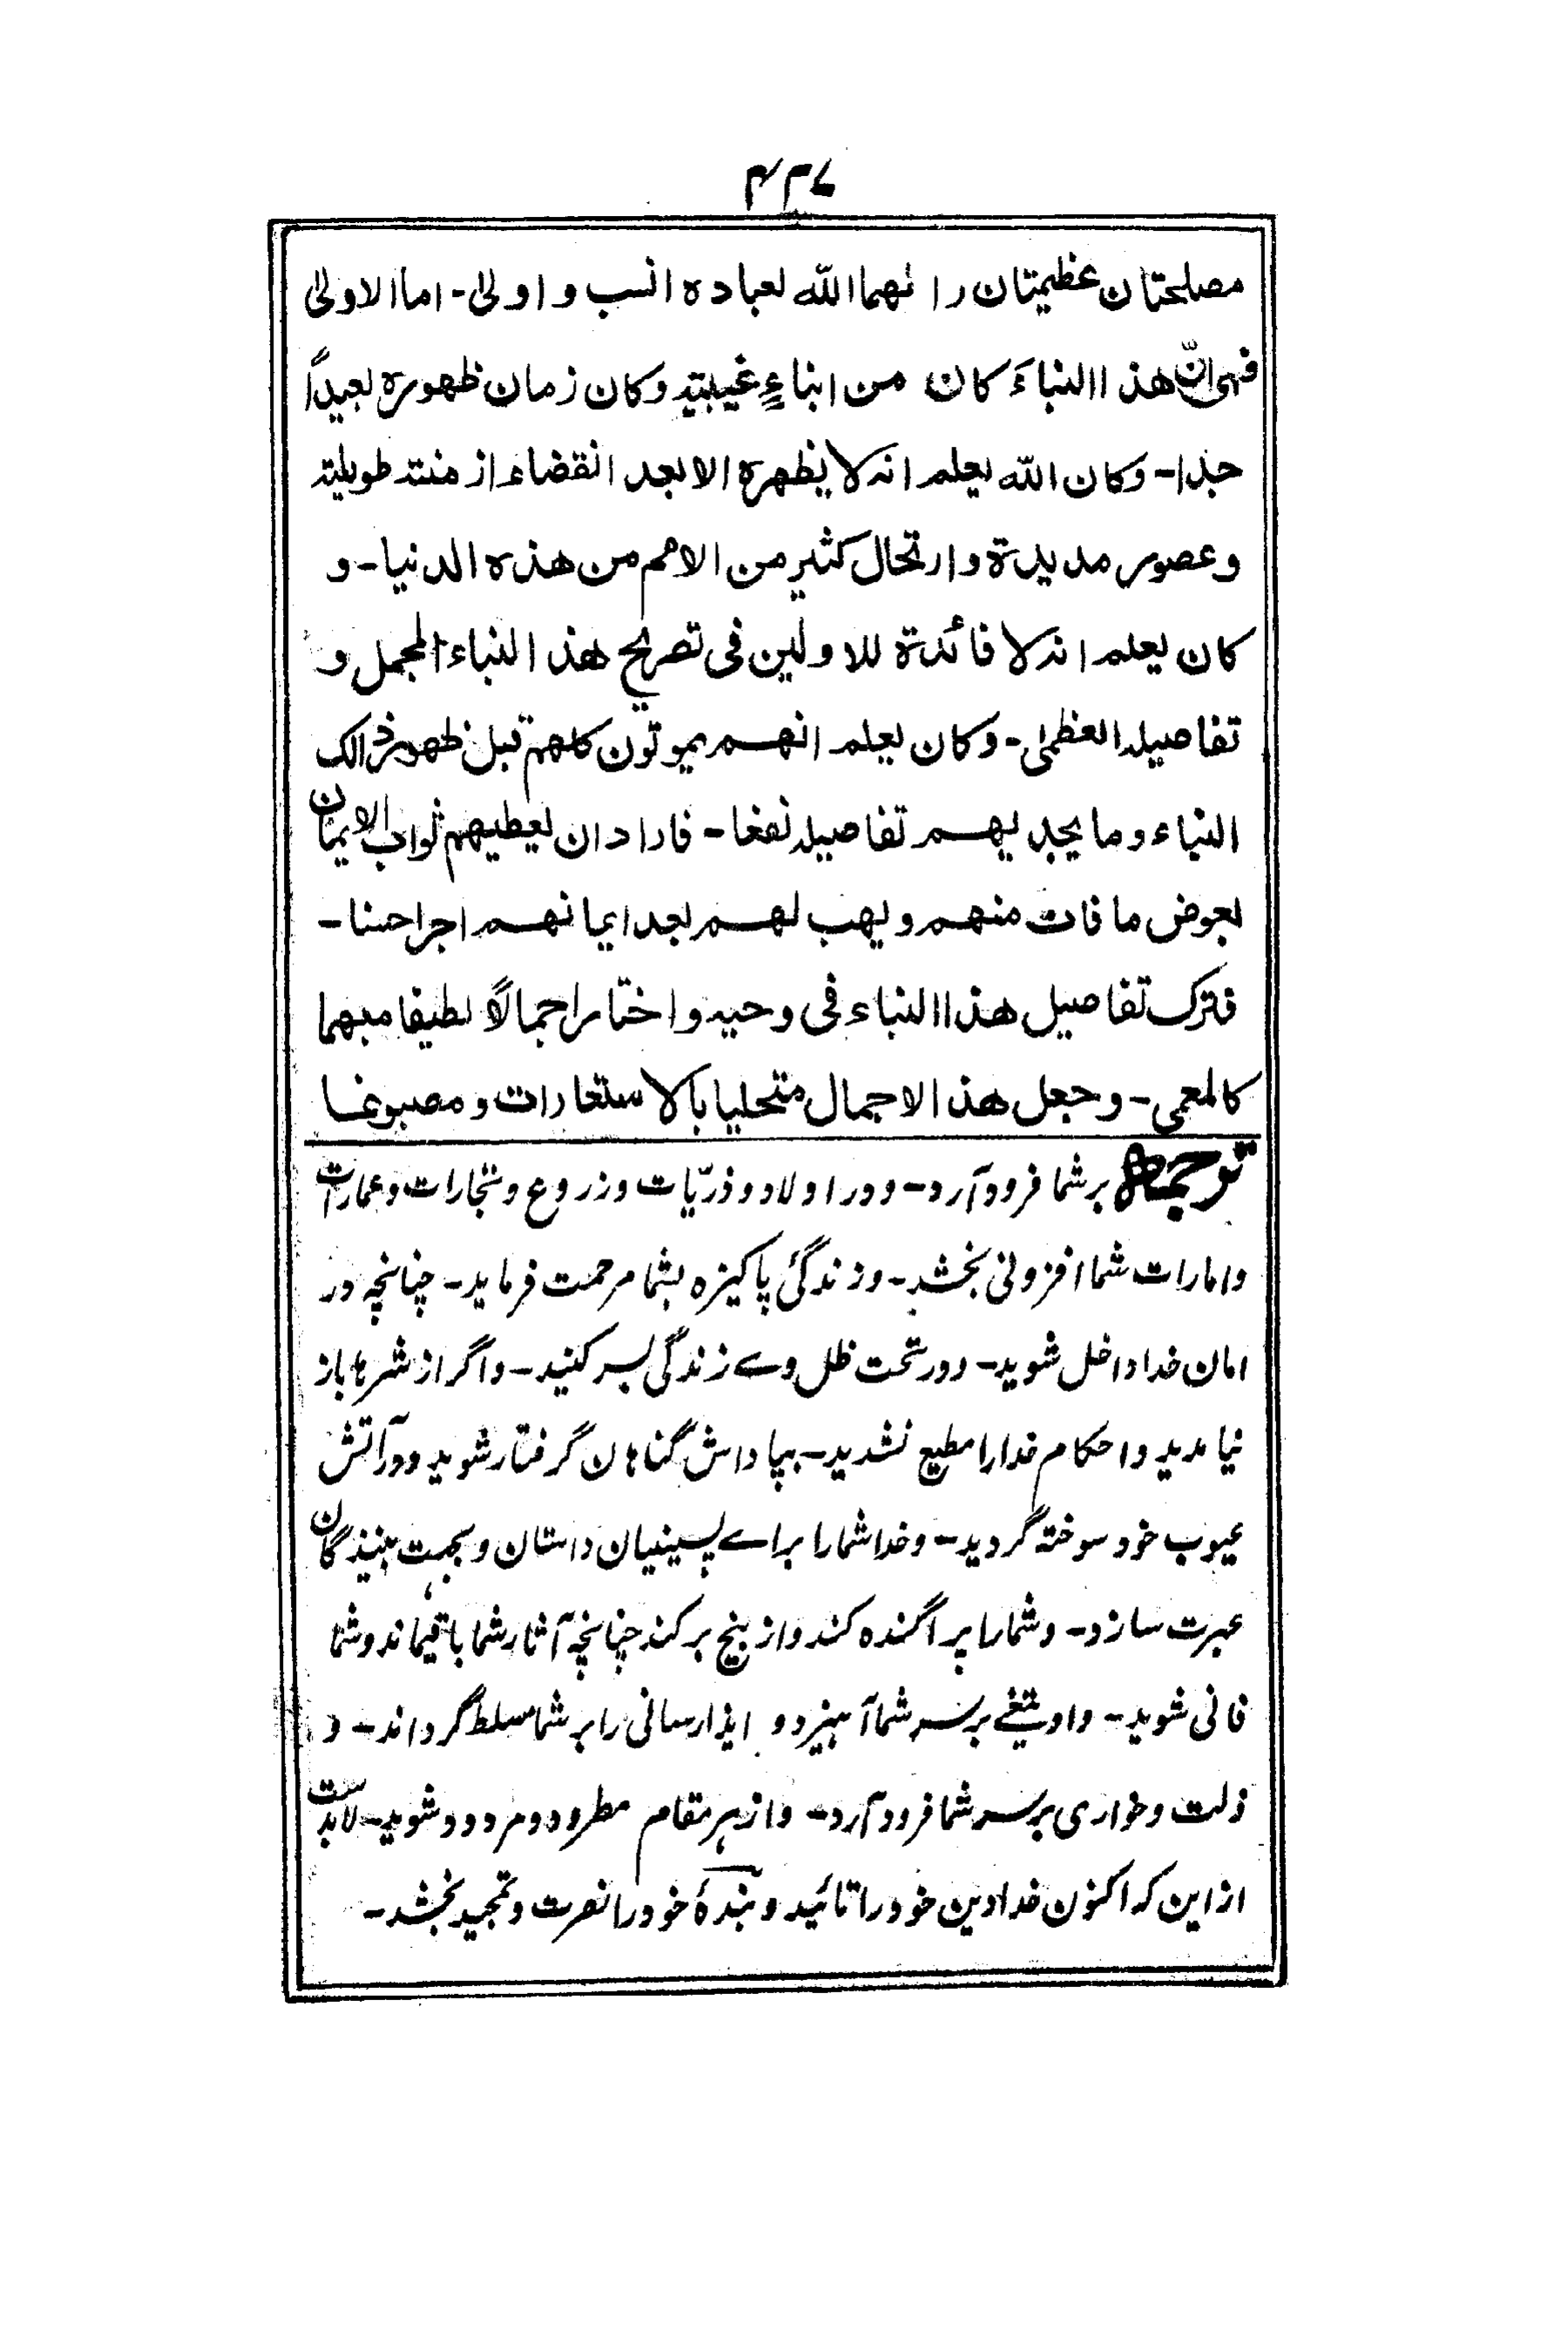 ۴۳۷
مصلحتان عظیمتان راٰهما الله لعباده انسب و اولیٰ۔ اما الاولیٰ
فهی انّ هذا النباءَ کان من انباءٍ غیبیة وکان زمان ظهوره بعیداً
جدا۔ وکان الله یعلم انه لا یظهره الا بعد انقضاء ازمنة طویلة
وعصور مدیدة وارتحال کثیر من الامم من هذه الدنیا۔ و
کان یعلم انه لا فائدة للاولین فی تصریح هذا النباء المجمل و
تفاصیله العظمیٰ۔ وکان یعلم انهم یموتون کلهم قبل ظهور ذالک
النباء وما یجدیهم تفاصیله نفعا۔ فاراد ان یعطیهم ثواب الایمان
بعوض ما فات منهم ویهب لهم بعد ایمانهم اجرا حسنا۔
فترک تفاصیل هذا النباء فی وحیه واختار اجمالًا لطیفا مبهما
کالمعمی۔ وجعل هذا الاجمال متحلیا بالاستعارات ومصبوغا
ترجمہ بر شما فرود آرد۔ و در اولاد و ذرّیات و زروع و تجارات و عمارات
و امارات شما افزونی بخشد۔ و زندگیٔ پاکیزہ بشما مرحمت فرماید۔ چنانچہ در
امان خدا داخل شوید۔ و در تحت ظل وے زندگی بسر کنید۔ و اگر از شرہا باز
نیامدید و احکام خدا را مطیع نشدید۔ بپاداش گناہان گرفتار شوید و در آتش
عیوب خود سوختہ گردید۔ و خدا شما را براے پسینیان داستان و بجہت بینندگان
عبرت سازد۔ و شما را پراگندہ کند و از بیخ برکند چنانچہ آثار شما باقیماند و شما
فانی شوید۔ و او تیغے بر سر شما آہیزد و ایذا رسانی را بر شما مسلط گرداند۔ و
ذلت و خواری بر سر شما فرود آرد۔ و از ہر مقام مطرود و مردود شوید۔ لابد ست
از این کہ اکنون خدا دین خود را تائید و بندۂ خود را نصرت و تمجید بخشد۔